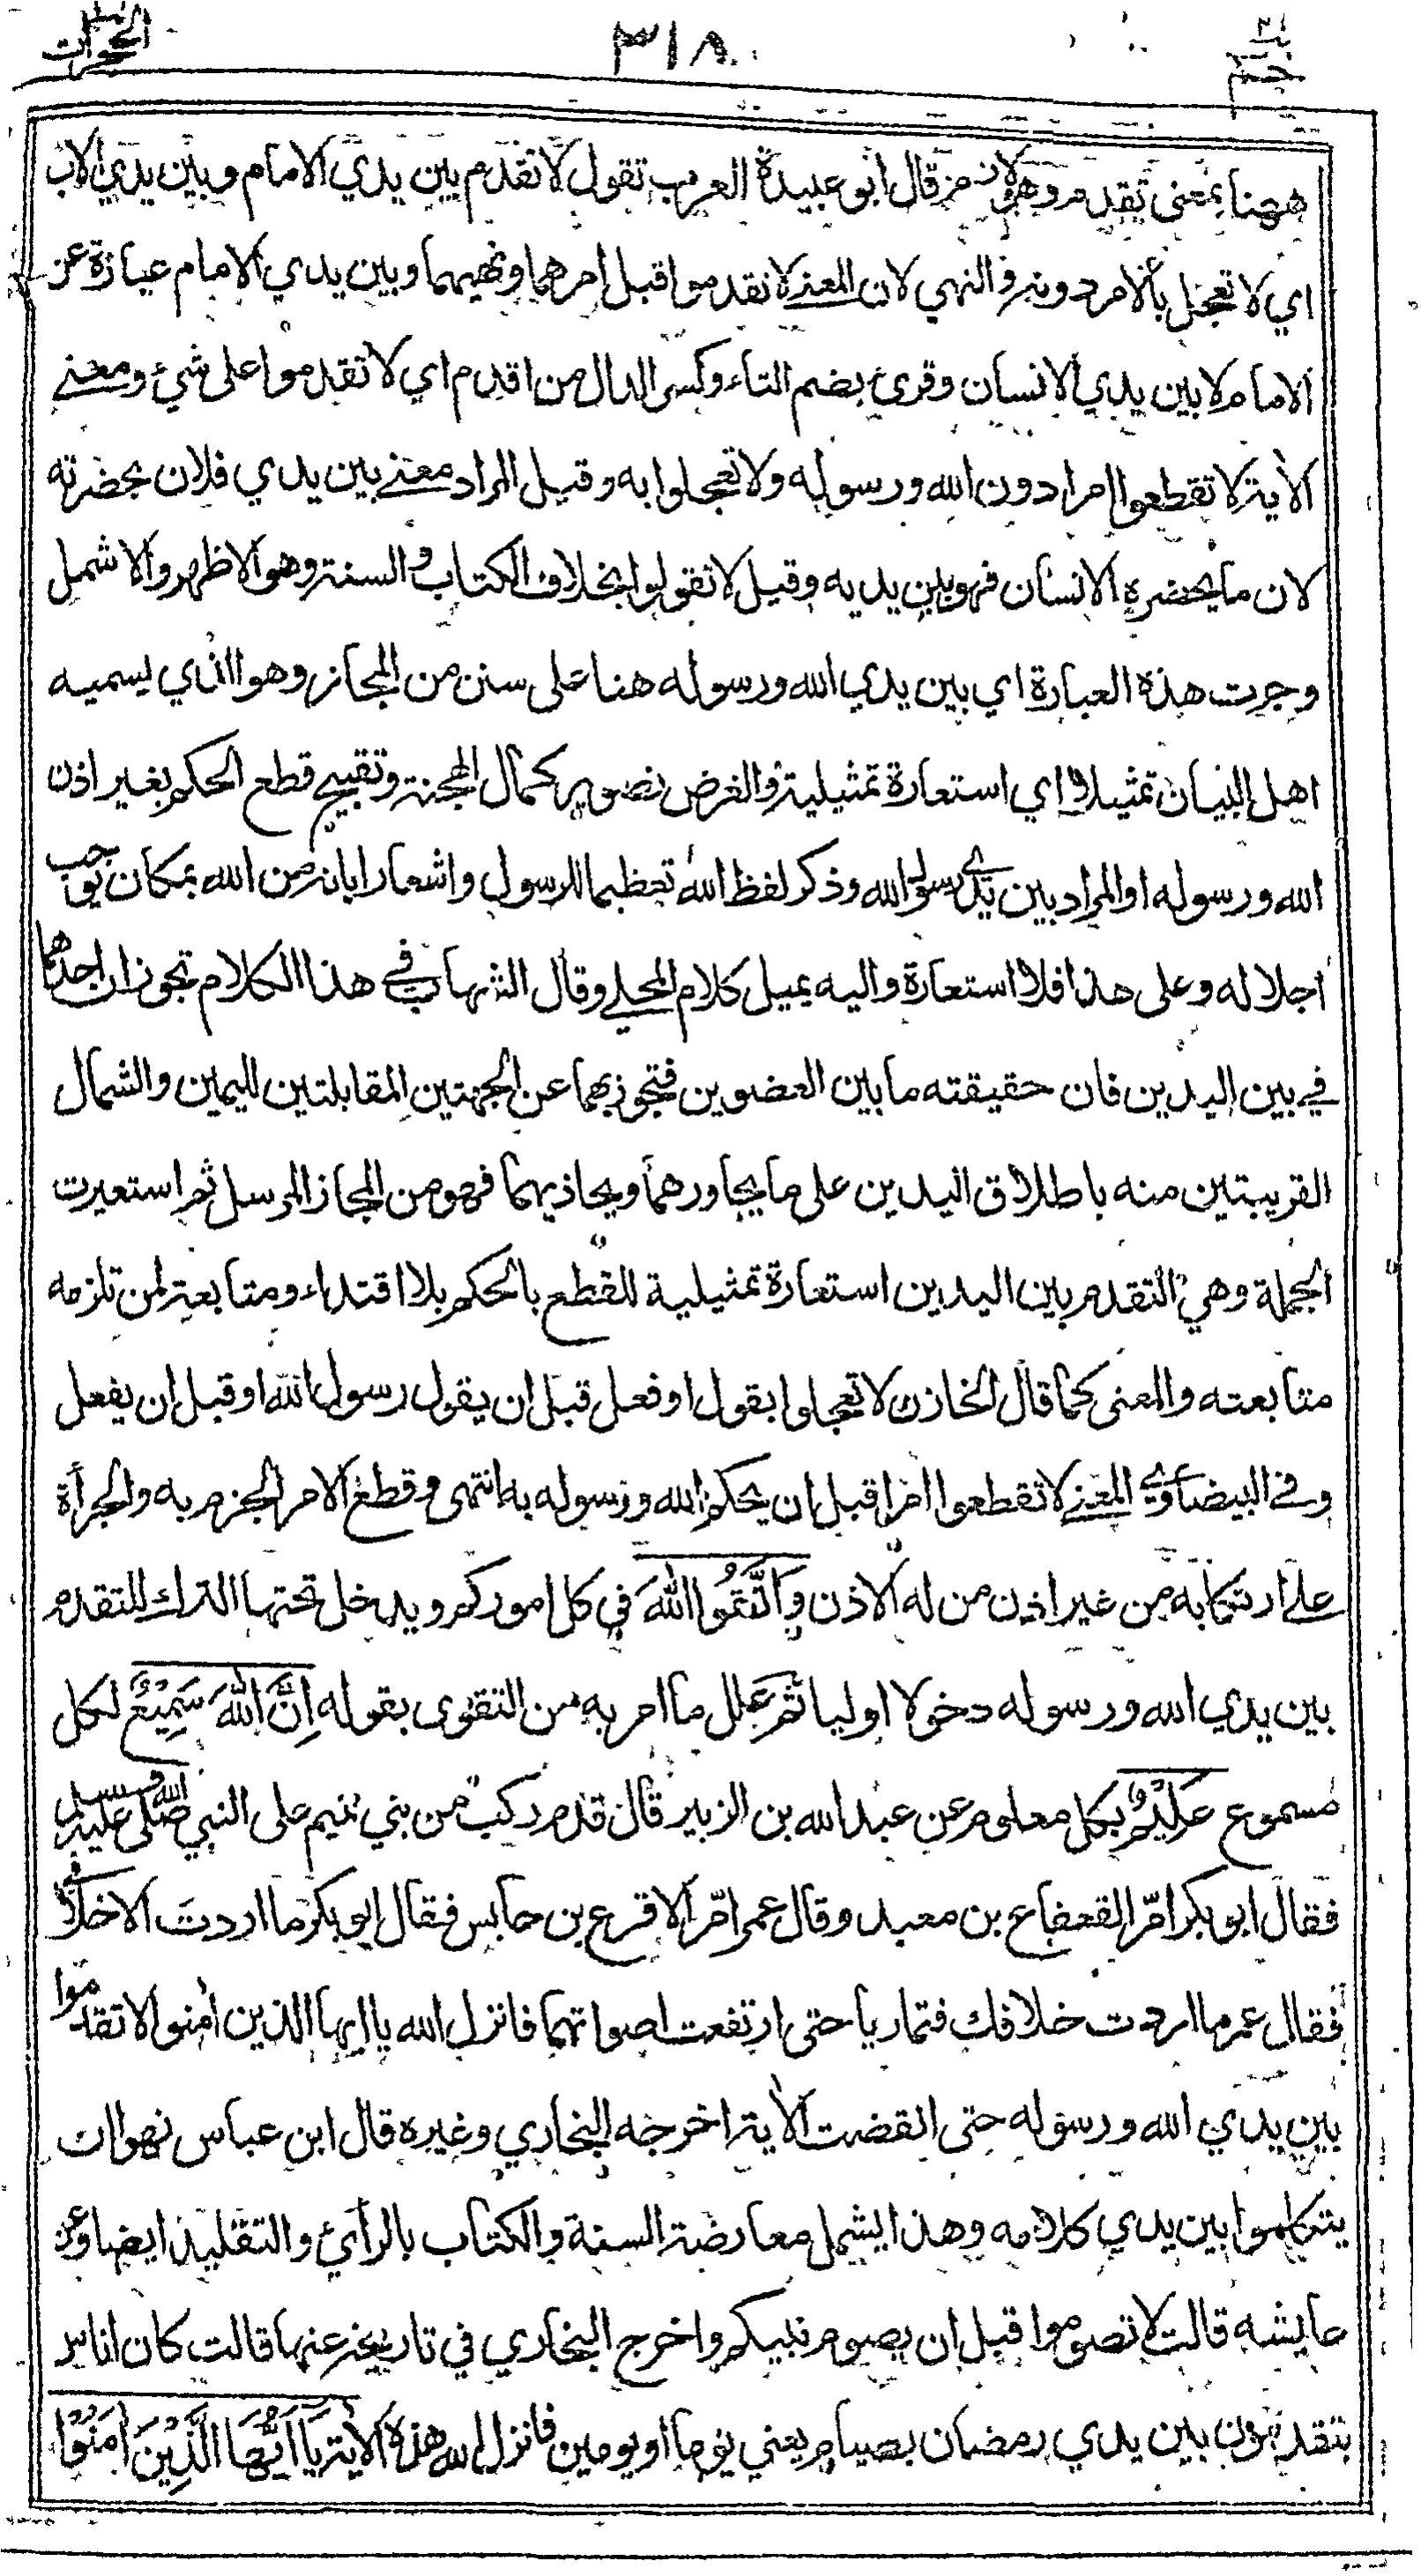 الحجرات
٣١٨
حم
ههنا بمعنى تقدم وهو لازم قال ابو عبيدة العرب تقول لا تقدم بين يدي الامام وبين يدي الاب
اي لا تعجل بالامر دونه والنهي لان المعنى لا تقدموا قبل امرهما ونهيهما وبين يدي الامام عبارة عن
الامام لا بين يدي الانسان وقرئ بضم التاء وكسر الدال من اقدم اي لا تقدموا على شيء ومعنى
الأية لا تقطعوا امرا دون الله ورسوله ولا تعجلوا به وقيل المراد معنى بين يدي فلان بحضرته
لان ما يحضره الانسان فهو بين يديه وقيل لا تقولوا بخلاف الكتاب والسنة وهو الاظهر والاشمل
وجرت هذه العبارة اي بين يدي الله ورسوله هنا على سنن من المجاز وهو الذي يسميه
اهل البيان تمثيلا اي استعارة تمثيلية والغرض تصوير كمال الهجنة وتقبيح قطع الحكم بغير اذن
الله ورسوله او المراد بين يدي رسول الله وذكر لفظ الله تعظيما للرسول واشعارا بانه من الله بمكان يوجب
اجلاله وعلى هذا فلا استعارة واليه يميل كلام المحلي وقال الشهاب في هذا الكلام تجوزان احدهما
في بين اليدين فان حقيقته ما بين العضوين فتجوز بهما عن الجهتين المقابلتين لليمين والشمال
القريبتين منه باطلاق اليدين على ما يجاورهما ويحاذيهما فهو من المجاز المرسل ثم استعيرت
الجملة وهي التقدم بين اليدين استعارة تمثيلية للقطع بالحكم بلا اقتداء ومتابعة لمن تلزمه
متابعته والمعنى كما قال الخازن لا تعجلوا بقول او فعل قبل ان يقول رسول الله او قبل ان يفعل
وفي البيضاوي المعنى لا تقطعوا امرا قبل ان يحكم الله ورسوله به انتهى وقطع الامر الجزم به والجرأة
على ارتكابه من غير اذن من له الاذن وَاتَّقُوا اللهَ في كل اموركم ويدخل تحتها الترك للتقدم
بين يدي الله ورسوله دخولا اوليا ثم علل ما امر به من التقوى بقوله اِنَّ اللهَ سَمِيْعٌ لكل
مسموع عَلِيْمٌ بكل معلوم عن عبد الله بن الزبير قال قدم ركب من بني تميم على النبي صلى الله عليه وسلم
فقال ابو بكر امّر القعقاع بن معبد وقال عمر امّر الاقرع بن حابس فقال ابو بكر ما اردت الا خلافي
فقال عمر ما اردت خلافك فتماريا حتى ارتفعت اصواتهما فانزل الله يا ايها الذين أمنوا لا تقدموا
بين يدي الله ورسوله حتى انقضت الأية اخرجه البخاري وغيره قال ابن عباس نهوا ان
يتكلموا بين يدي كلامه وهذا يشمل معارضة السنة والكتاب بالرأي والتقليد ايضا وعن
عايشه قالت لا تصوموا قبل ان يصوم نبيكم واخرج البخاري في تاريخه عنها قالت كان اناس
يتقدمون بين يدي رمضان بصيام يعني يوما او يومين فانزل الله هذه الأية يَا اَيُّهَا الَّذِيْنَ اٰمَنُوْا